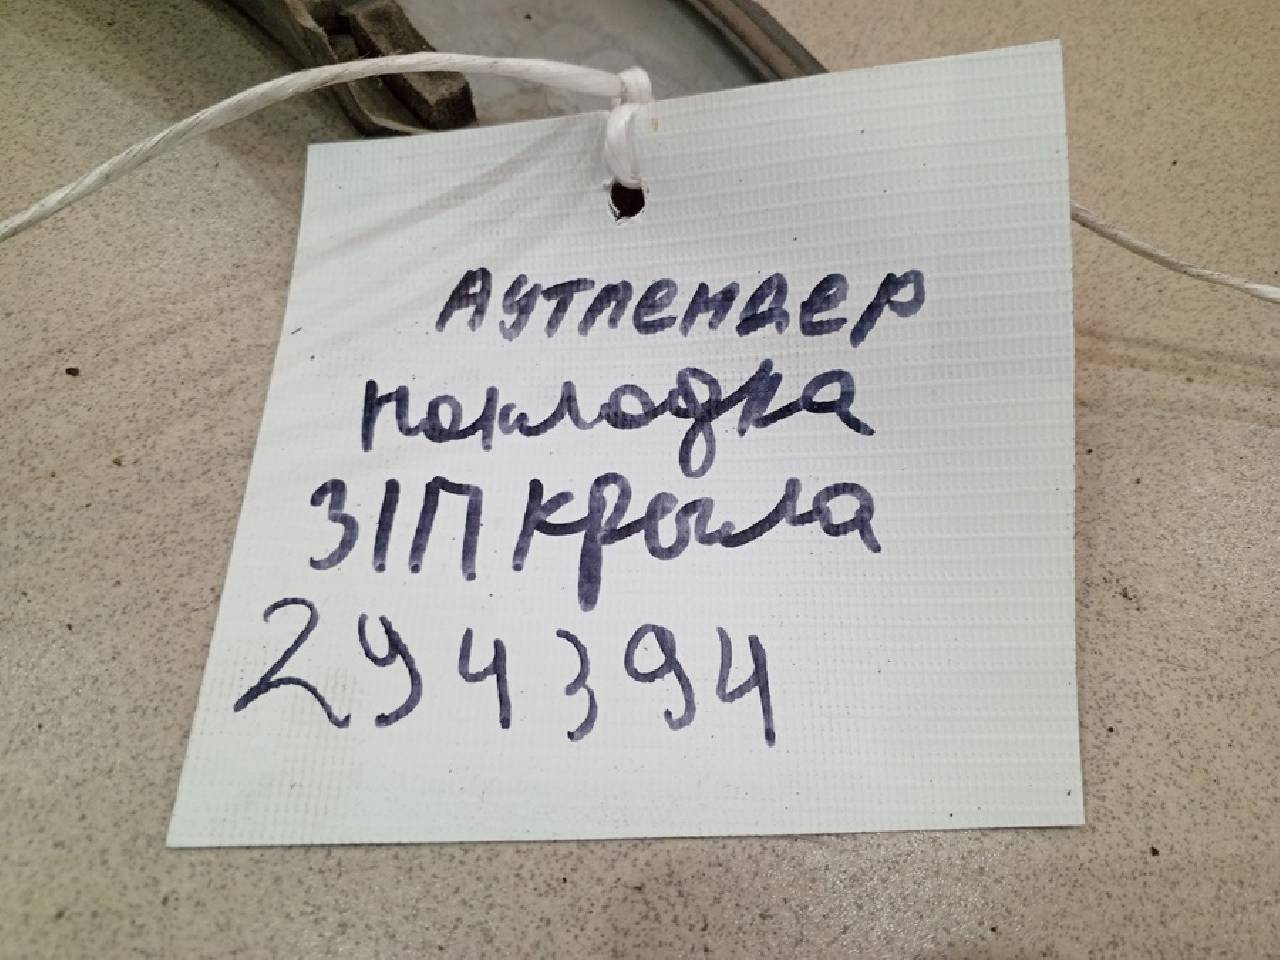 Аутлендер
накладка
З/П крыла
294394